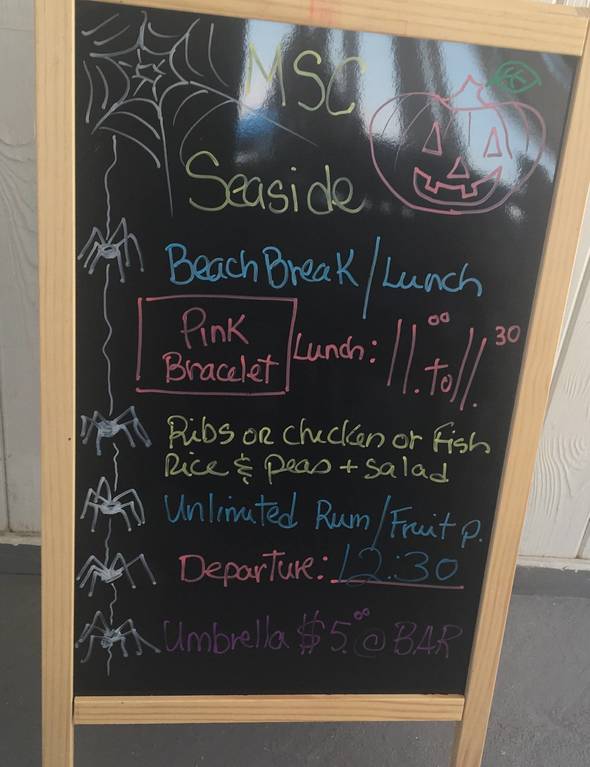 MSC
Seaside
Beach Break / Lunch
Pink
Bracelet
Lunch: 11.00 to 11.30
Ribs or chicken or Fish
Rice & peas + salad
Unlimited Rum / Fruit p.
Departure: 12:30
Umbrella $5.00 @ BAR